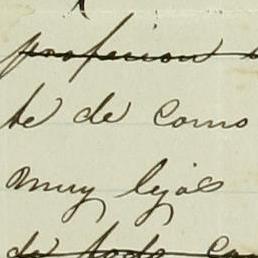 profesion
te de como
muy lejos
de todo co